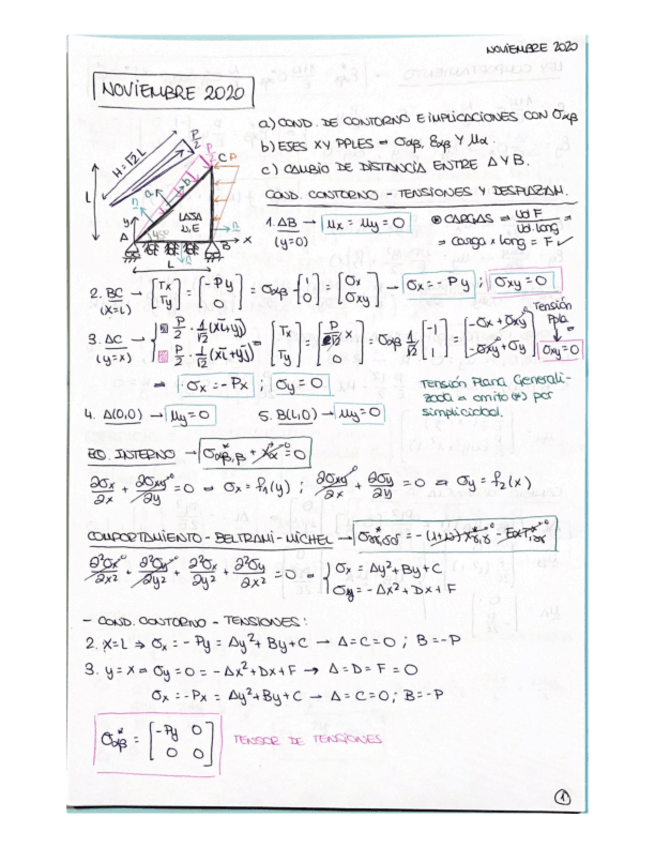 NOVIEMBRE 2020
NOVIEMBRE 2020
a) COND. DE CONTORNO E IMPLICACIONES CON σαβ
b) EJES XY PPLES = σαβ, εαβ Y μα.
c) CAMBIO DE DISTANCIA ENTRE A Y B.
COND. CONTORNO - TENSIONES Y DESPLAZAM.
H=√2L
P/2
P/2
C P
L
a
b
n
LAJA
ν, E
n
y
A
45°
B
x
n
L
1. AB → μx = μy = 0
(y=0)
⊛ CARGAS = ud F / ud. long =
= carga x long = F ✓
2. BC → [Tx Ty] = [-Py 0] = σαβ · [1 0] = [σx σxy] → σx = -Py ; σxy = 0
(x=L)
3. AC → { P/2 · 1/√2 (xi+yj) P/2 · 1/√2 (xi+yj) = [Tx Ty] = [P/√2 x] = σαβ 1/√2 [-1 1] = [-σx + σxy -σxy + σy] σxy=0
(y=x)
Tensión
Ppla
= -σx = -Px ; σy = 0
Tensión Plana Generali-
zada = omito (*) por
simplicidad.
4. A(0,0) → μy = 0 5. B(L,0) → μy = 0
EQ. INTERNO → σ*αβ,β + Xα = 0
∂σx/∂x + ∂σxy/∂y = 0 ⇒ σx = f1(y) ; ∂σxy/∂x + ∂σy/∂y = 0 ⇒ σy = f2(x)
COMPORTAMIENTO - BELTRAMI - MICHEL →
∂²σx/∂x² + ∂²σy/∂y² + ∂²σx/∂y² + ∂²σy/∂x² = 0 = { σx = Ay²+By+C
σy = -Ax²+Dx+F
- COND. CONTORNO - TENSIONES:
2. x=L ⇒ σx = -Py = Ay²+By+C → A=C=0 ; B=-P
3. y=x ⇒ σy = 0 = -Ax²+Dx+F → A=D=F=0
σx = -Px = Ay²+By+C → A=C=0; B=-P
σ*αβ = [-Py 0 0 0] TENSOR DE TENSIONES
1